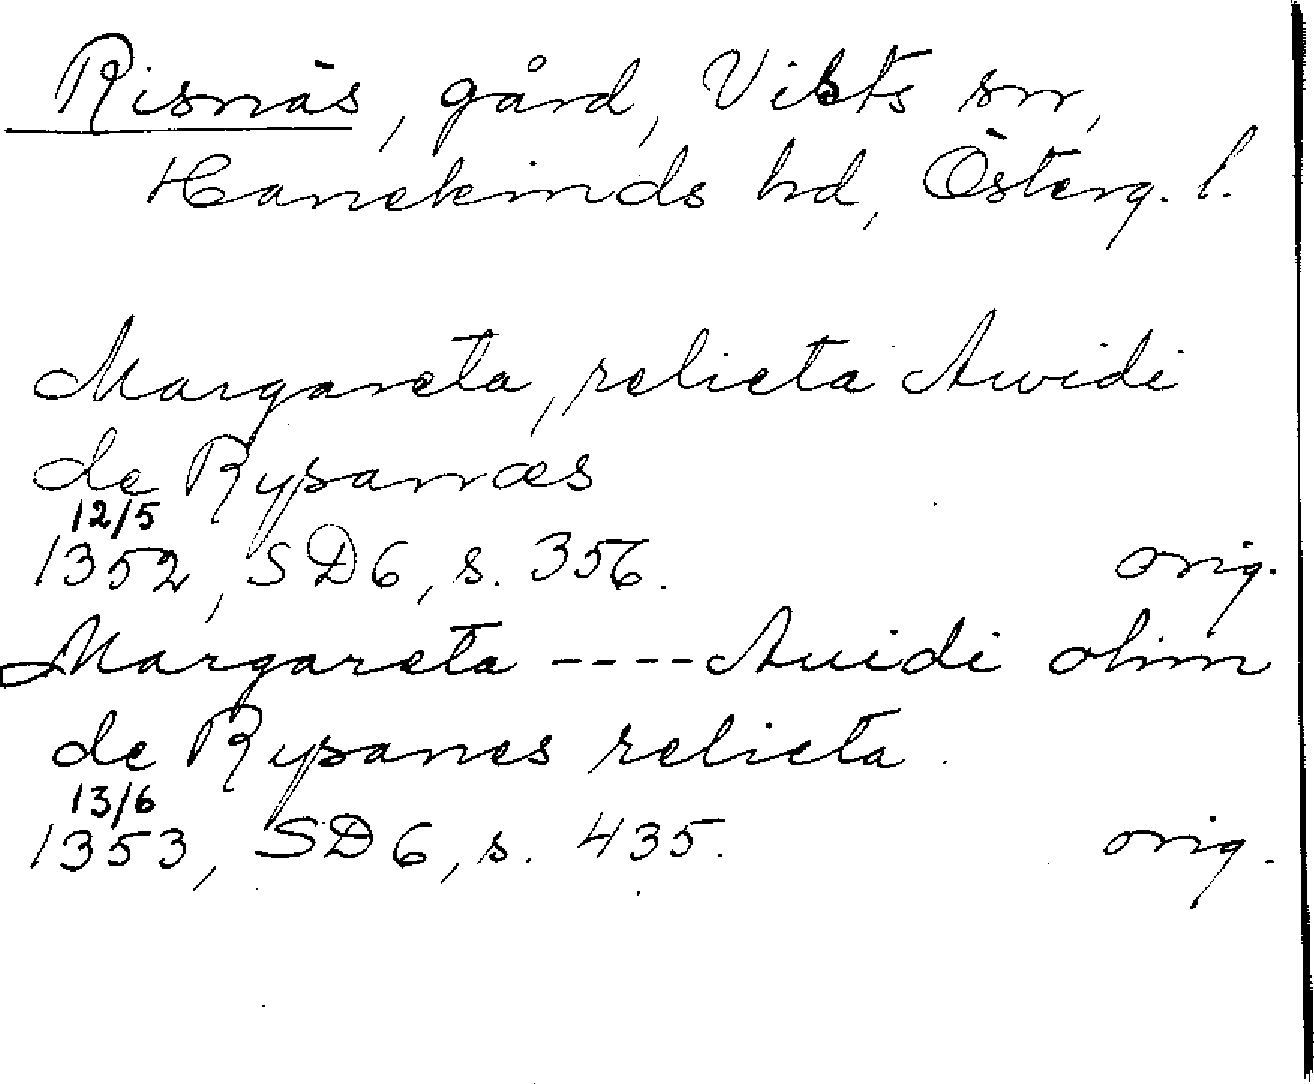 Risnäs, gård, Viksts sn,
Hanekinds hd, Österg. l.
Margareta, relicta Awidi
de Rysanæs
12/5
1352, SD6, s. 356. orig.
Margareta ---- Auidi olim
de Rysanes relicta.
13/6
1353, SD6, s. 435. orig.